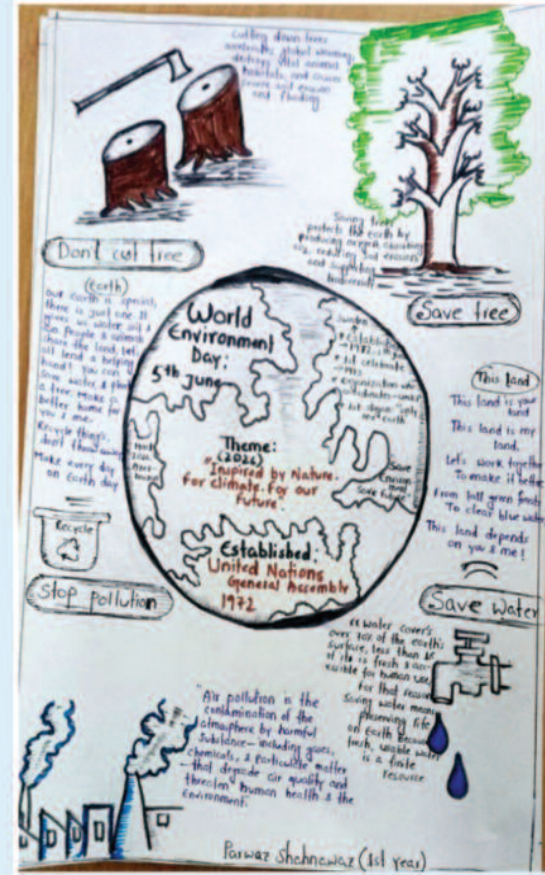 Cutting down trees
accelerates global warming,
destroys vital animal
habitats, and causes
severe soil erosion
and flooding
Don't cut tree
Saving trees
protects the earth by
producing oxygen, absorbing
co2, reducing soil erosion
and supporting
biodiversity
Save tree
(Earth)
Our Earth is special,
there is just one. It
gives us water, soil &
Sun people & animals
share the land, let
all lend a helping
hand! you can
save water & plant
a tree. Make a
better home for
you & me.
Recycle things,
don't throw away
Make every day
an Earth day
Recycle
Stop pollution
World
Environment
Day:
5th June
Sweden
Established
1972
1st celebrate
1973
organization who
Theme:
(2026)
"Inspired by Nature.
For Climate. For our
Future."
Save
Environment
Save Future
Established:
United Nations
General Assembly
1972
This land
This land is your
land
This land is my
land.
Let's work together
To make it better
From tall green forests
To clear blue water
This land depends
on you & me!
Save Water
water cover's
over 70% of the earth's
surface, less than 1%
of it is fresh & acc-
esible for human use,
For that reason
Saving water means
preserving life
on Earth because
fresh, usable water
is a finite
resource
"Air pollution is the
contamination of the
atmosphere by harmful
substance—including gases,
chemicals, & particulate matter
—that degrade air quality and
threaten human health & the
Environment."
Parwaz Shahnawaz (1st year)